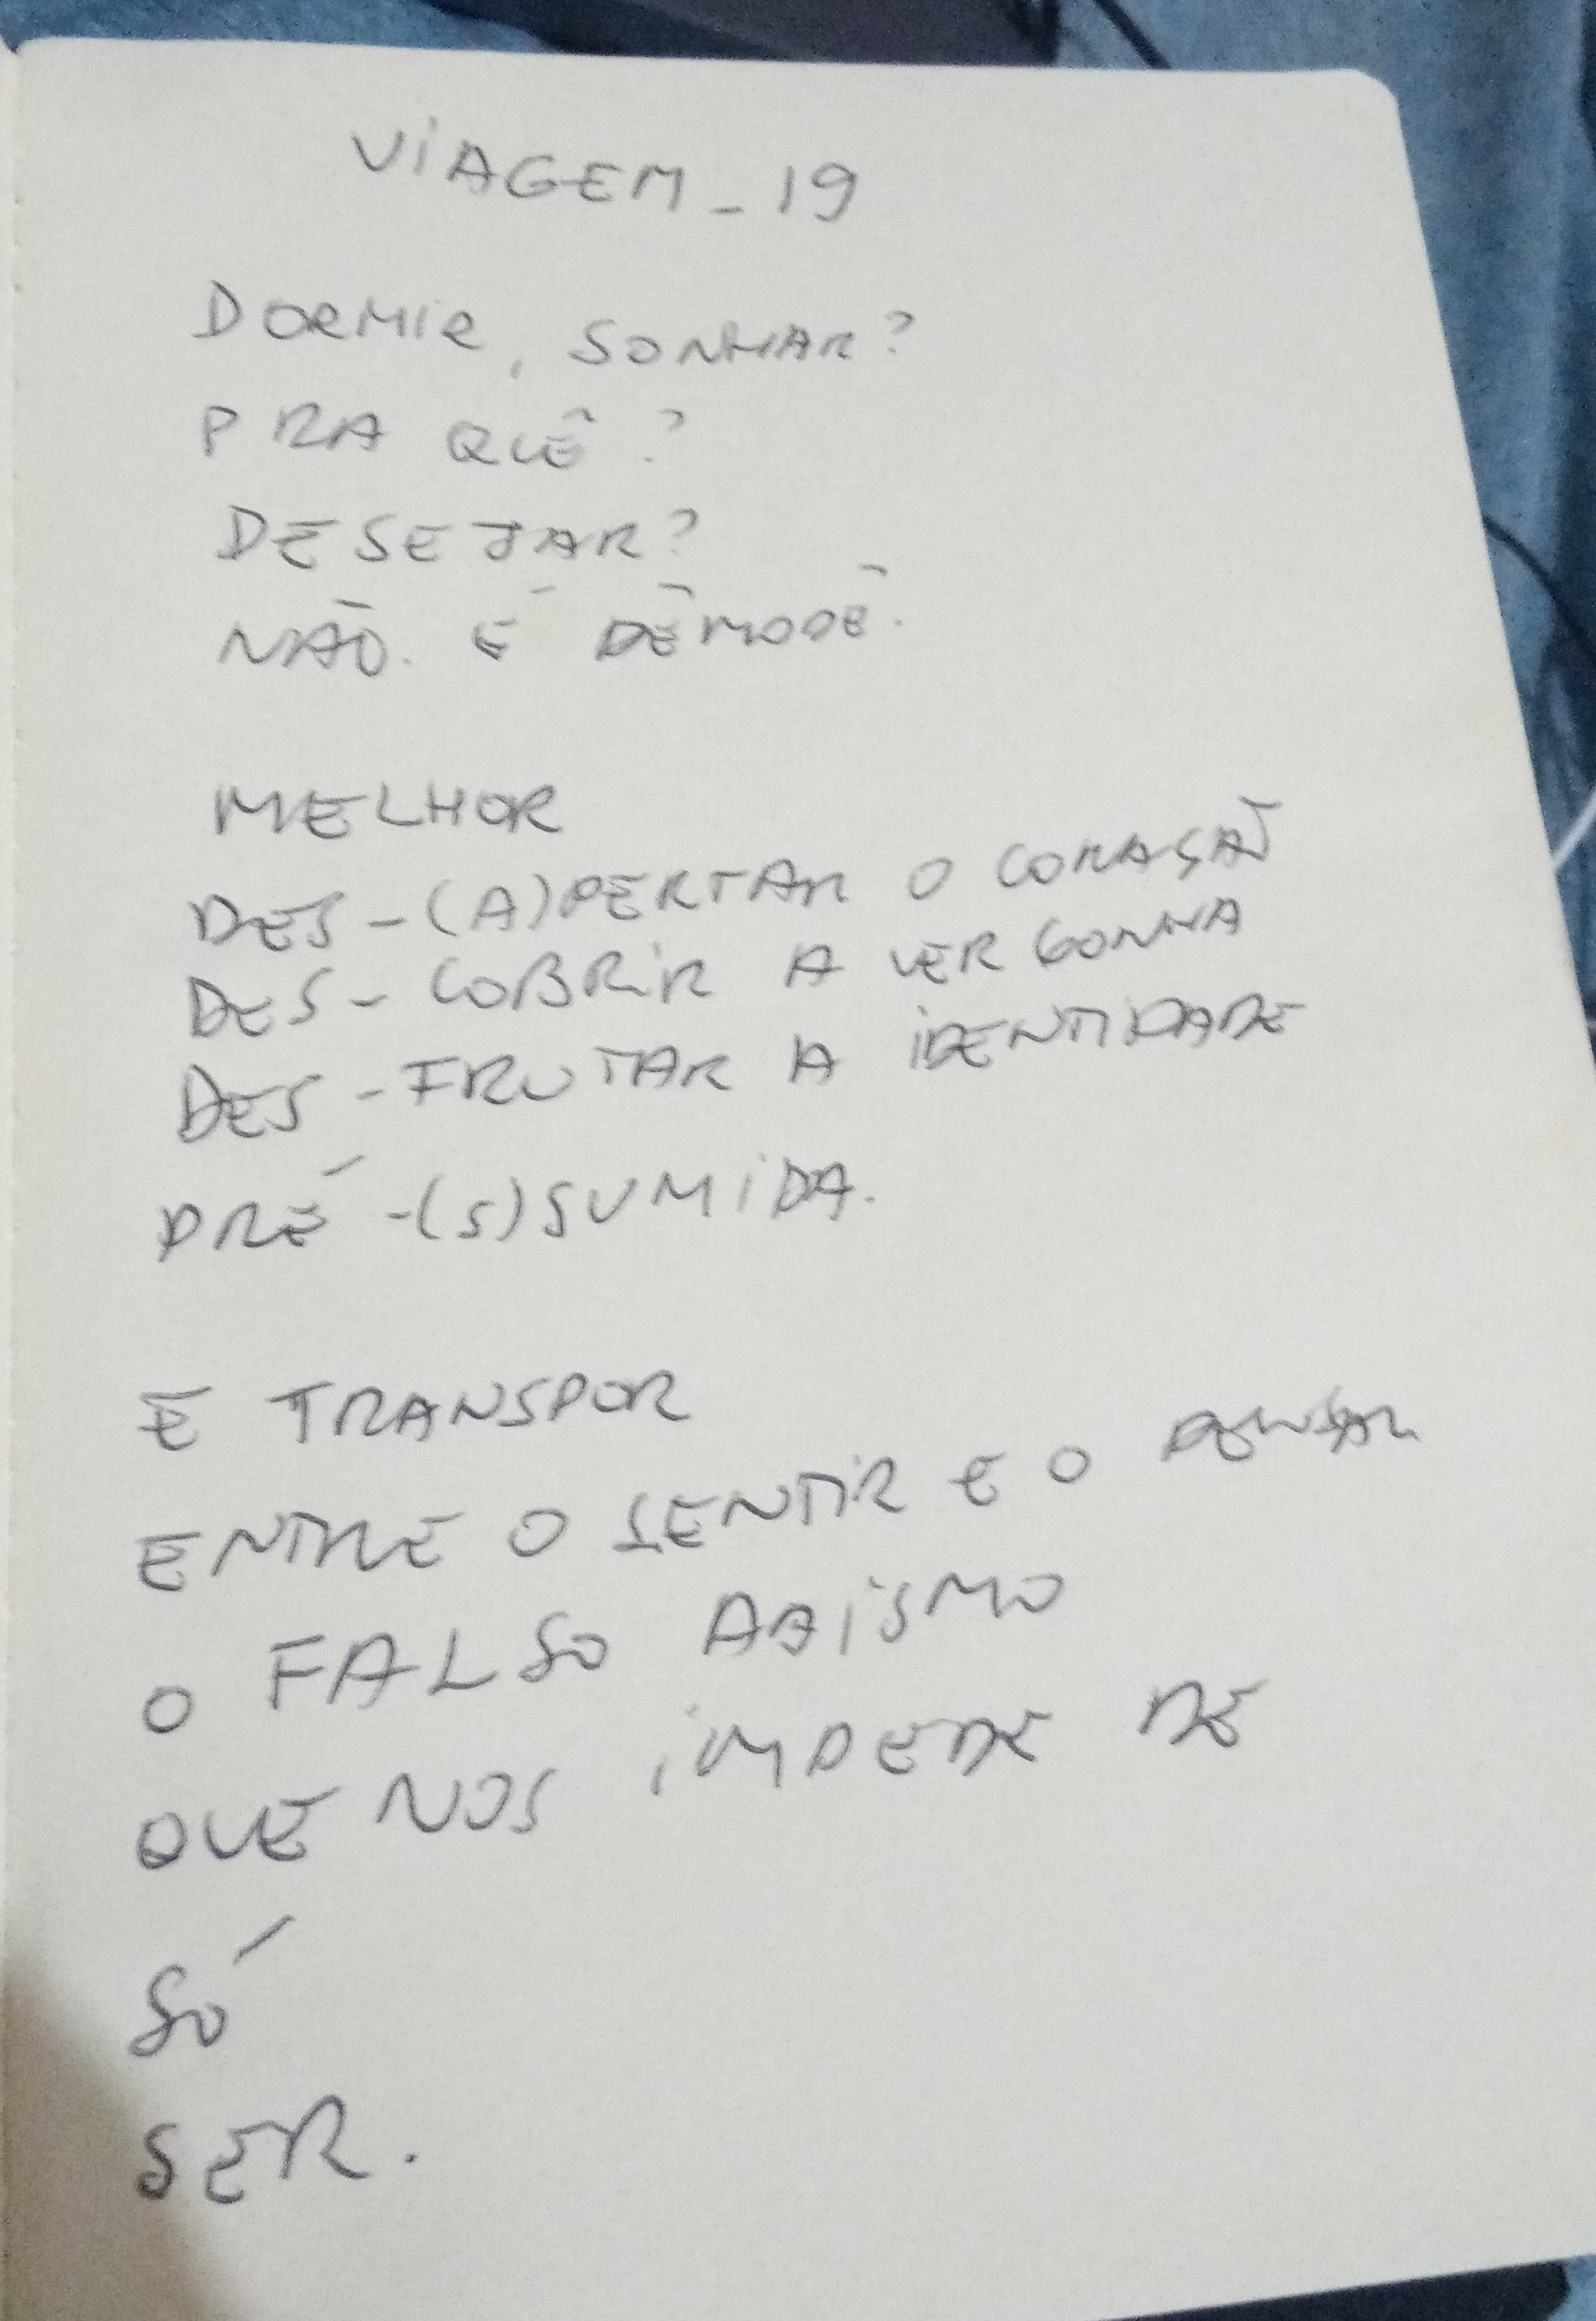 VIAGEM_19
DORMIR, SONHAR?
PRA QUÊ?
DESEJAR?
NÃO. É DÊMODÊ.
MELHOR
DES-(A)PERTAR O CORAÇÃO
DES-COBRIR A VERGONHA
DES-FRUTAR A IDENTIDADE
PRÉ-(S)SUMIDA.
E TRANSPOR
ENTRE O SENTIR E O PENSAR
O FALSO ABISMO
QUE NOS IMPEDE DE
SÓ
SER.